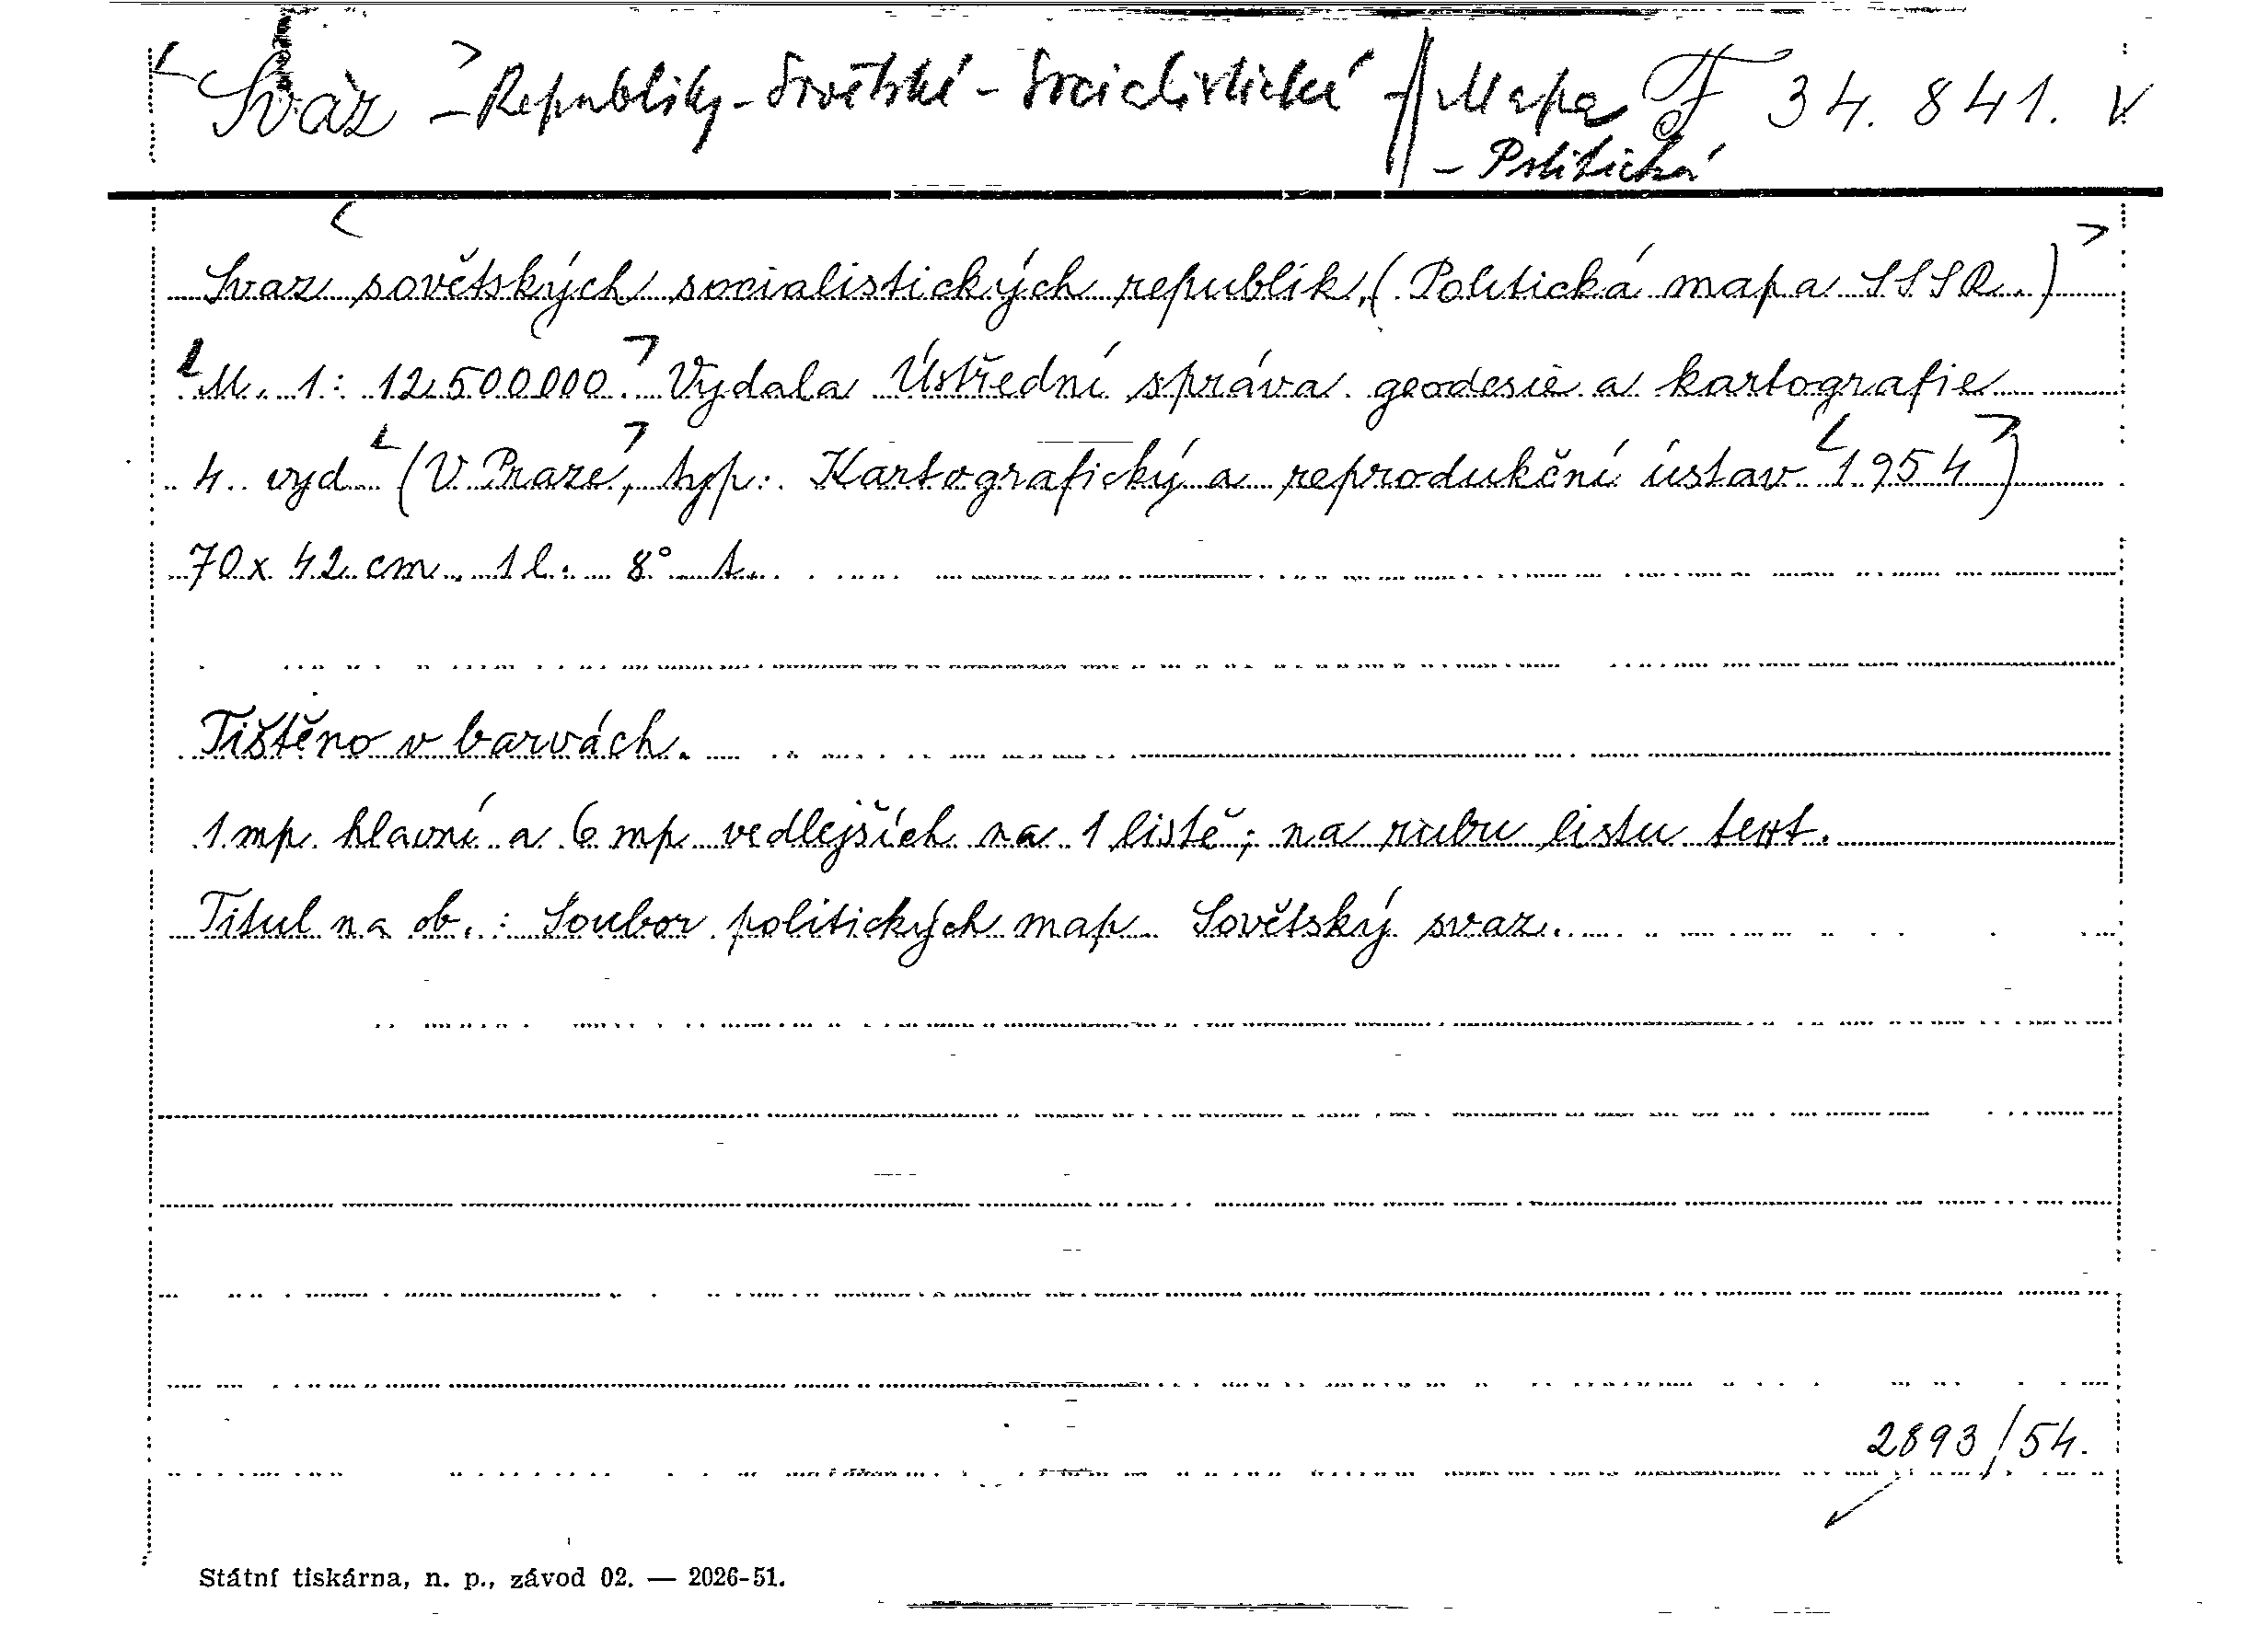 Svaz - Republiky - Sovětské - Socialistické - // Mapa F 34.841. V
- Politická
Svaz sovětských socialistických republik, (Politická mapa SSSR.)
M. 1 : 12,500.000. Vydala Ústřední správa geodesie a kartografie
4. vyd. (V Praze, typ. Kartografický a reprodukční ústav 1954)
70 x 42 cm. 1 l. 8° t.
Tištěno v barvách.
1 mp. hlavní a 6 mp vedlejších na 1 listě; na rubu listu text.
Titul na ob. : Soubor politických map Sovětský svaz.
2893/54.
Státní tiskárna, n. p., závod 02. — 2026-51.